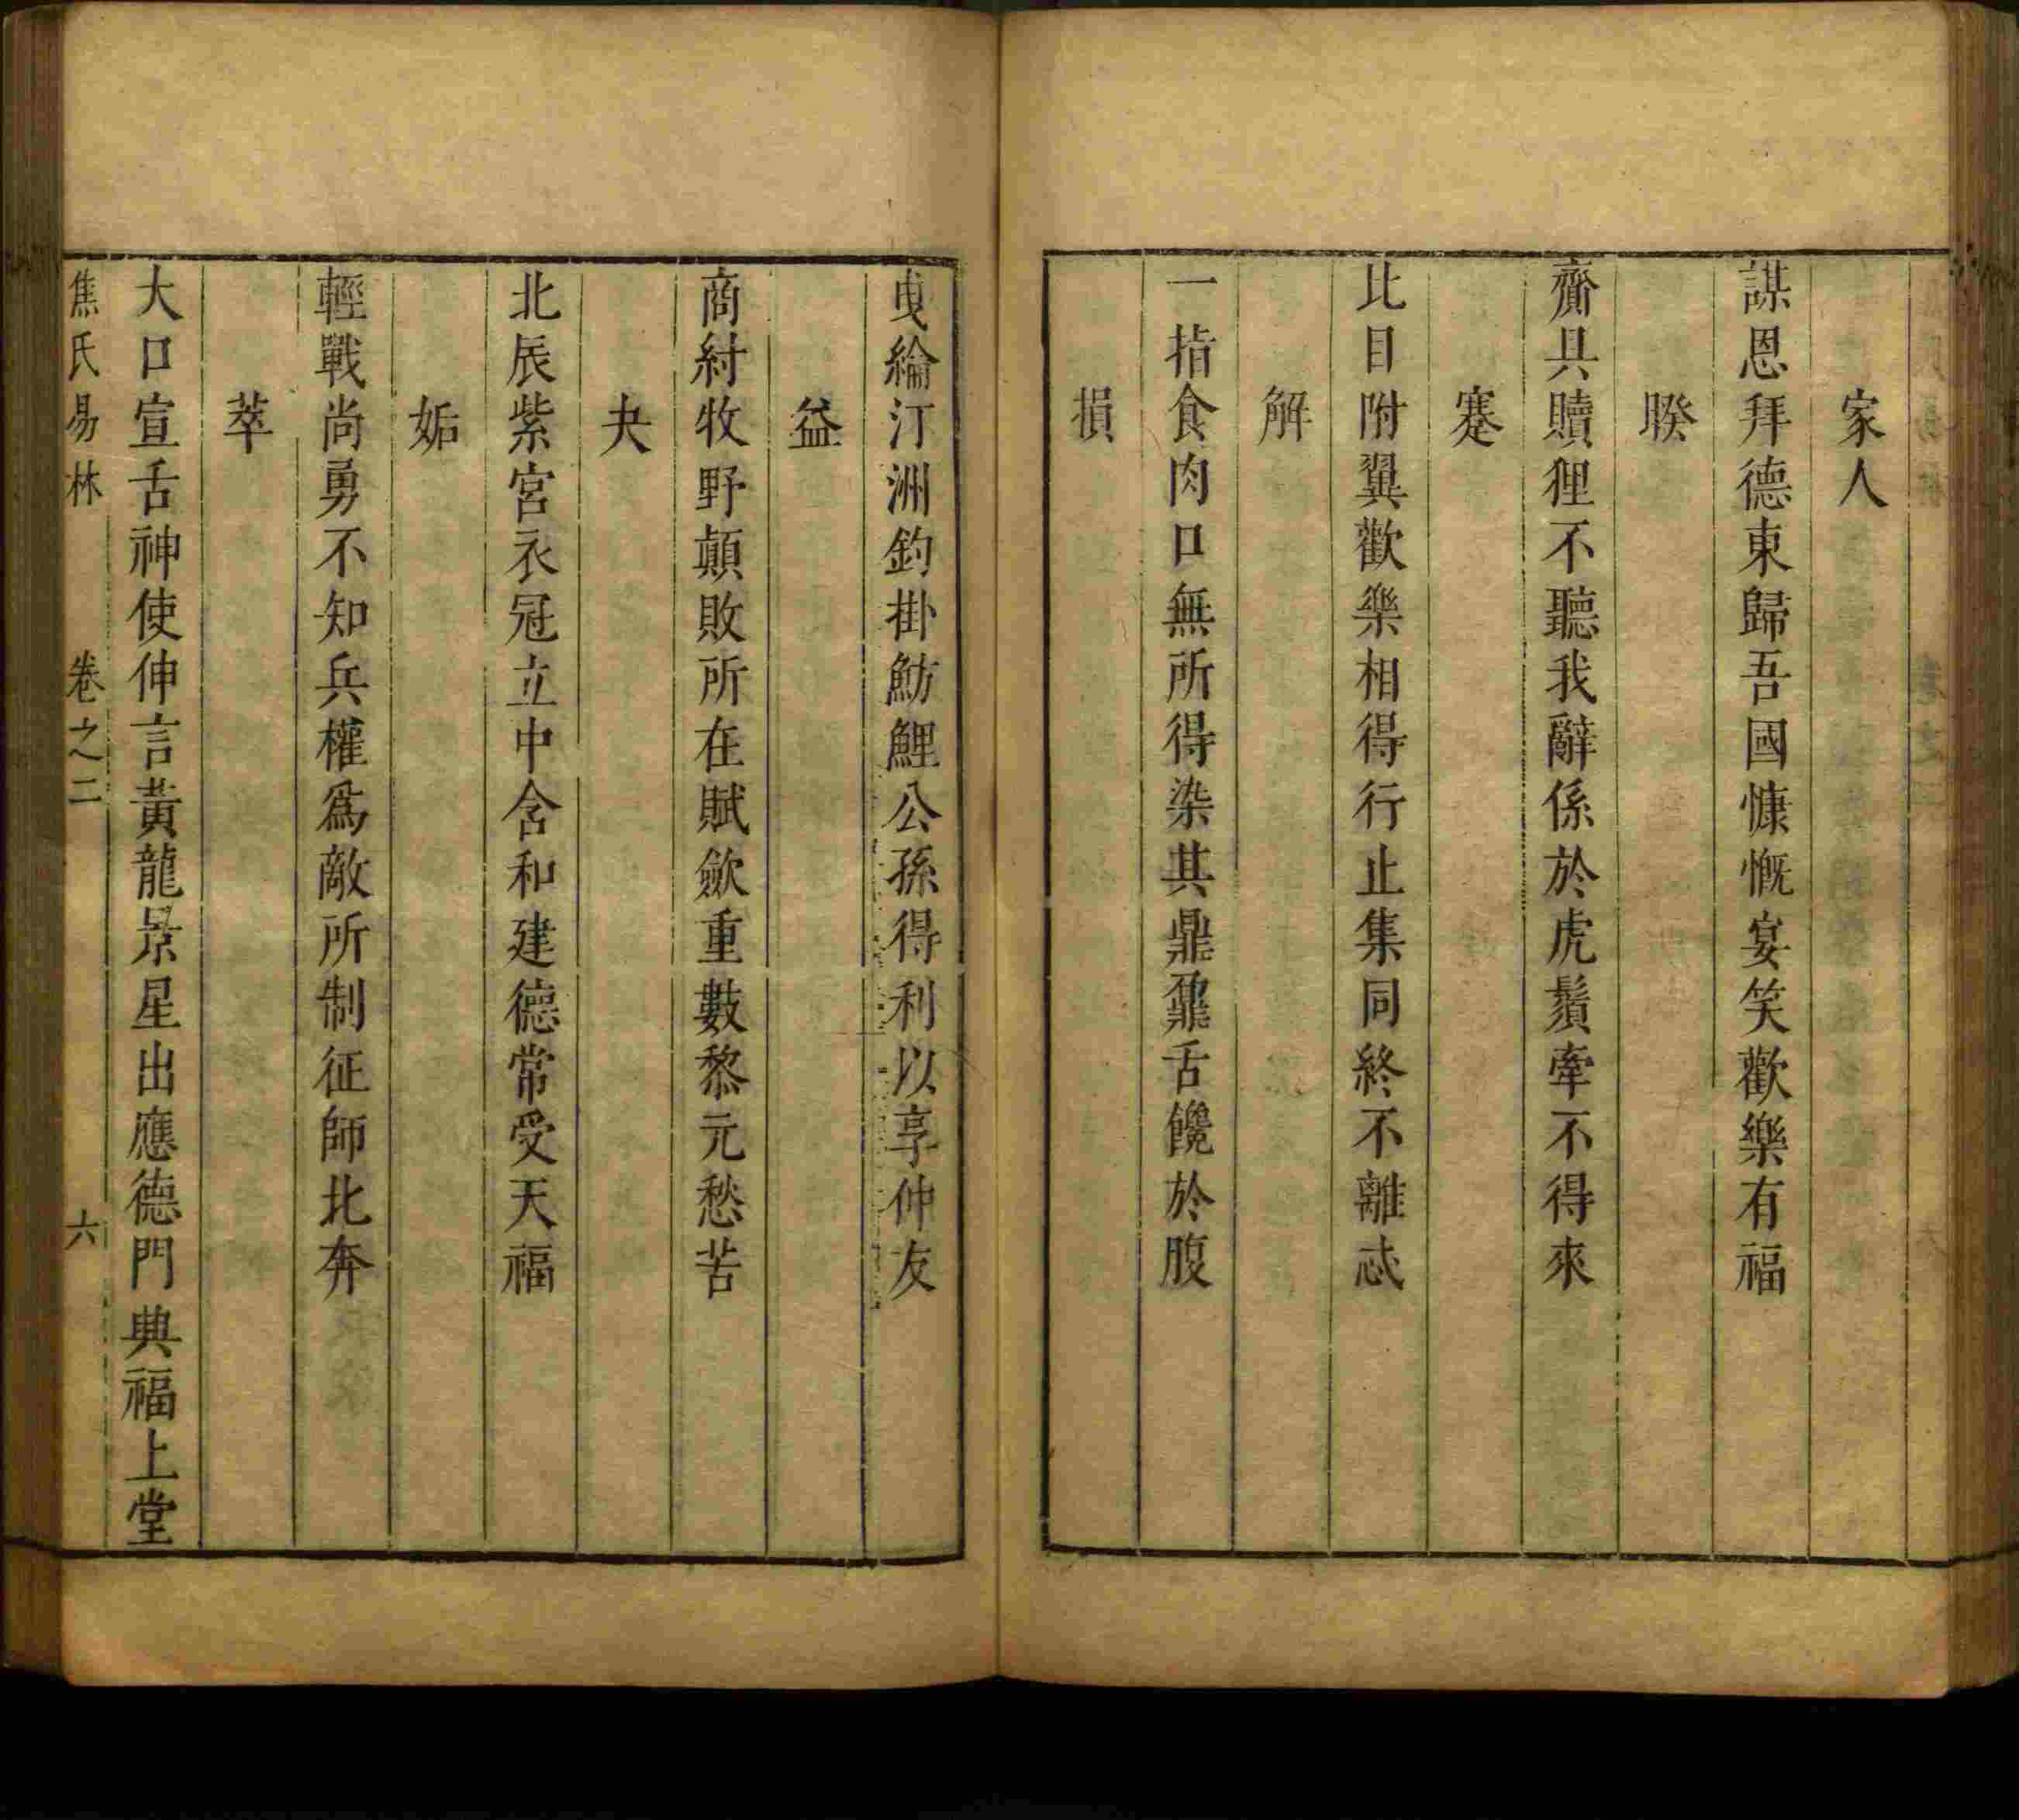 家人
謀恩拜德東歸吾國慷慨宴笑歡樂有福
睽
齎具贖狸不聽我辭係於虎鬚牽不得來
蹇
比目附翼歡樂相得行止集同終不離忒
解
一指食肉口無所得染其鼎鼐舌饞於腹
損
曳綸汀洲鈎掛魴鯉公孫得利以享仲友
益
商紂牧野顛敗所在賦歛重數黎元愁苦
夬
北辰紫宮衣冠立中含和建德常受天福
姤
輕戰尚勇不知兵權爲敵所制征師北奔
萃
大口宣舌神使伸言黃龍景星出應德門典福上堂
焦氏易林 卷之二 六